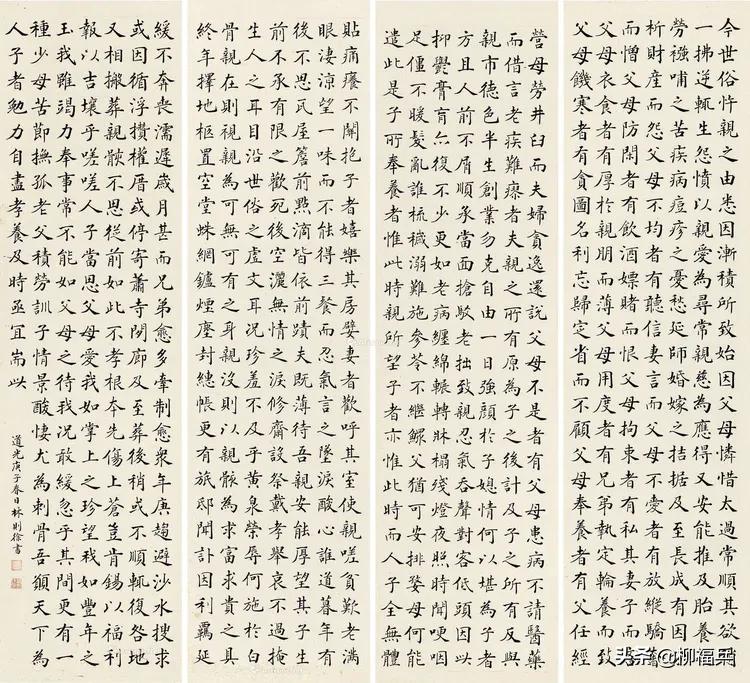 今世俗忤親之由悉因漸積所致始因父母憐惜太過常順其欲稍
一拂逆輒生怨憤以親愛為尋常親慈為應得又安能推及胎養之
勞襁哺之苦疾病痘疹之憂愁延師婚嫁之拮据及至長成有因
析財產而怨父母不均者有聽信妻言而怨父母不愛者有放縱驕蕩
而憎父母防閑者有飲酒嫖賭而恨父母拘束者有私其妻子而薄
父母衣食者有厚於親朋而薄父母用度者有兄弟執定輪養而致
父母饑寒者有貪圖名利忘歸定省而不顧父母者有父任經
營母勞井臼而夫婦貪逸還說父母不是者有父母患病不請醫藥
而借言老疾難療者夫親之所有原為子之後計及子之所有反與
親市德色半生創業勿克自由一日強顏於子媳情何以堪為子者
方且人前不屑順承當面搶駁老拙致親忍氣吞聲對客低頭因此
抑鬱膏肓亦復不少更如老病纏綿輾轉牀榻殘燈夜照時聞哽咽
足僵不暖髮亂誰梳穢溺難施參苓不繼鰥父猶可安排嫠母何能
遣此是子所奉養者惟此時親所望子者亦惟此時而人子全無體
貼痛癢不關抱子者嬉樂其房嬖妻者歡呼其室使親嗟貧歎老滿
眼淒涼望一味而不能得三餐而忍氣言之墜淚酸心誰道暮年有
後不思瓦屋簷前點滴皆依前蹟夫既薄待吾親安能厚望其子生
前不承有限之歡死後空灑無情之淚修齋設祭戴孝舉哀不過掩
生人之耳目沿世俗之虛文耳況珍羞不及乎黃泉榮辱何施於白
骨親在則視親為可無可有之身親沒則以親骸為求富求貴之具
終年擇地柩置空堂蛛網鑪煙塵封繐帳更有旅邸聞訃因利羈延
緩不奔喪濡遲歲月甚而兄弟愈多牽制愈衆年庚趨避沙水搜求
或因循浮攢權厝或停寄蕭寺閒廊及至葬後稍或不順輒復咎地
又相搬葬親骸不思從前如此不孝根本先傷上蒼豈肯錫以福利
報以吉壤乎嗟嗟人子當思父母愛我如掌上之珍望我如豐年之
玉我雖竭力奉事常不能如父母之待我況敢緩忽乎其間更有一
種少母苦節撫孤老父積勞訓子情景酸悽尤為刺骨吾籲天下為
人子者勉力自盡孝養及時亟宜耑此
道光庚子春日林則徐書
头条 @柳福兵